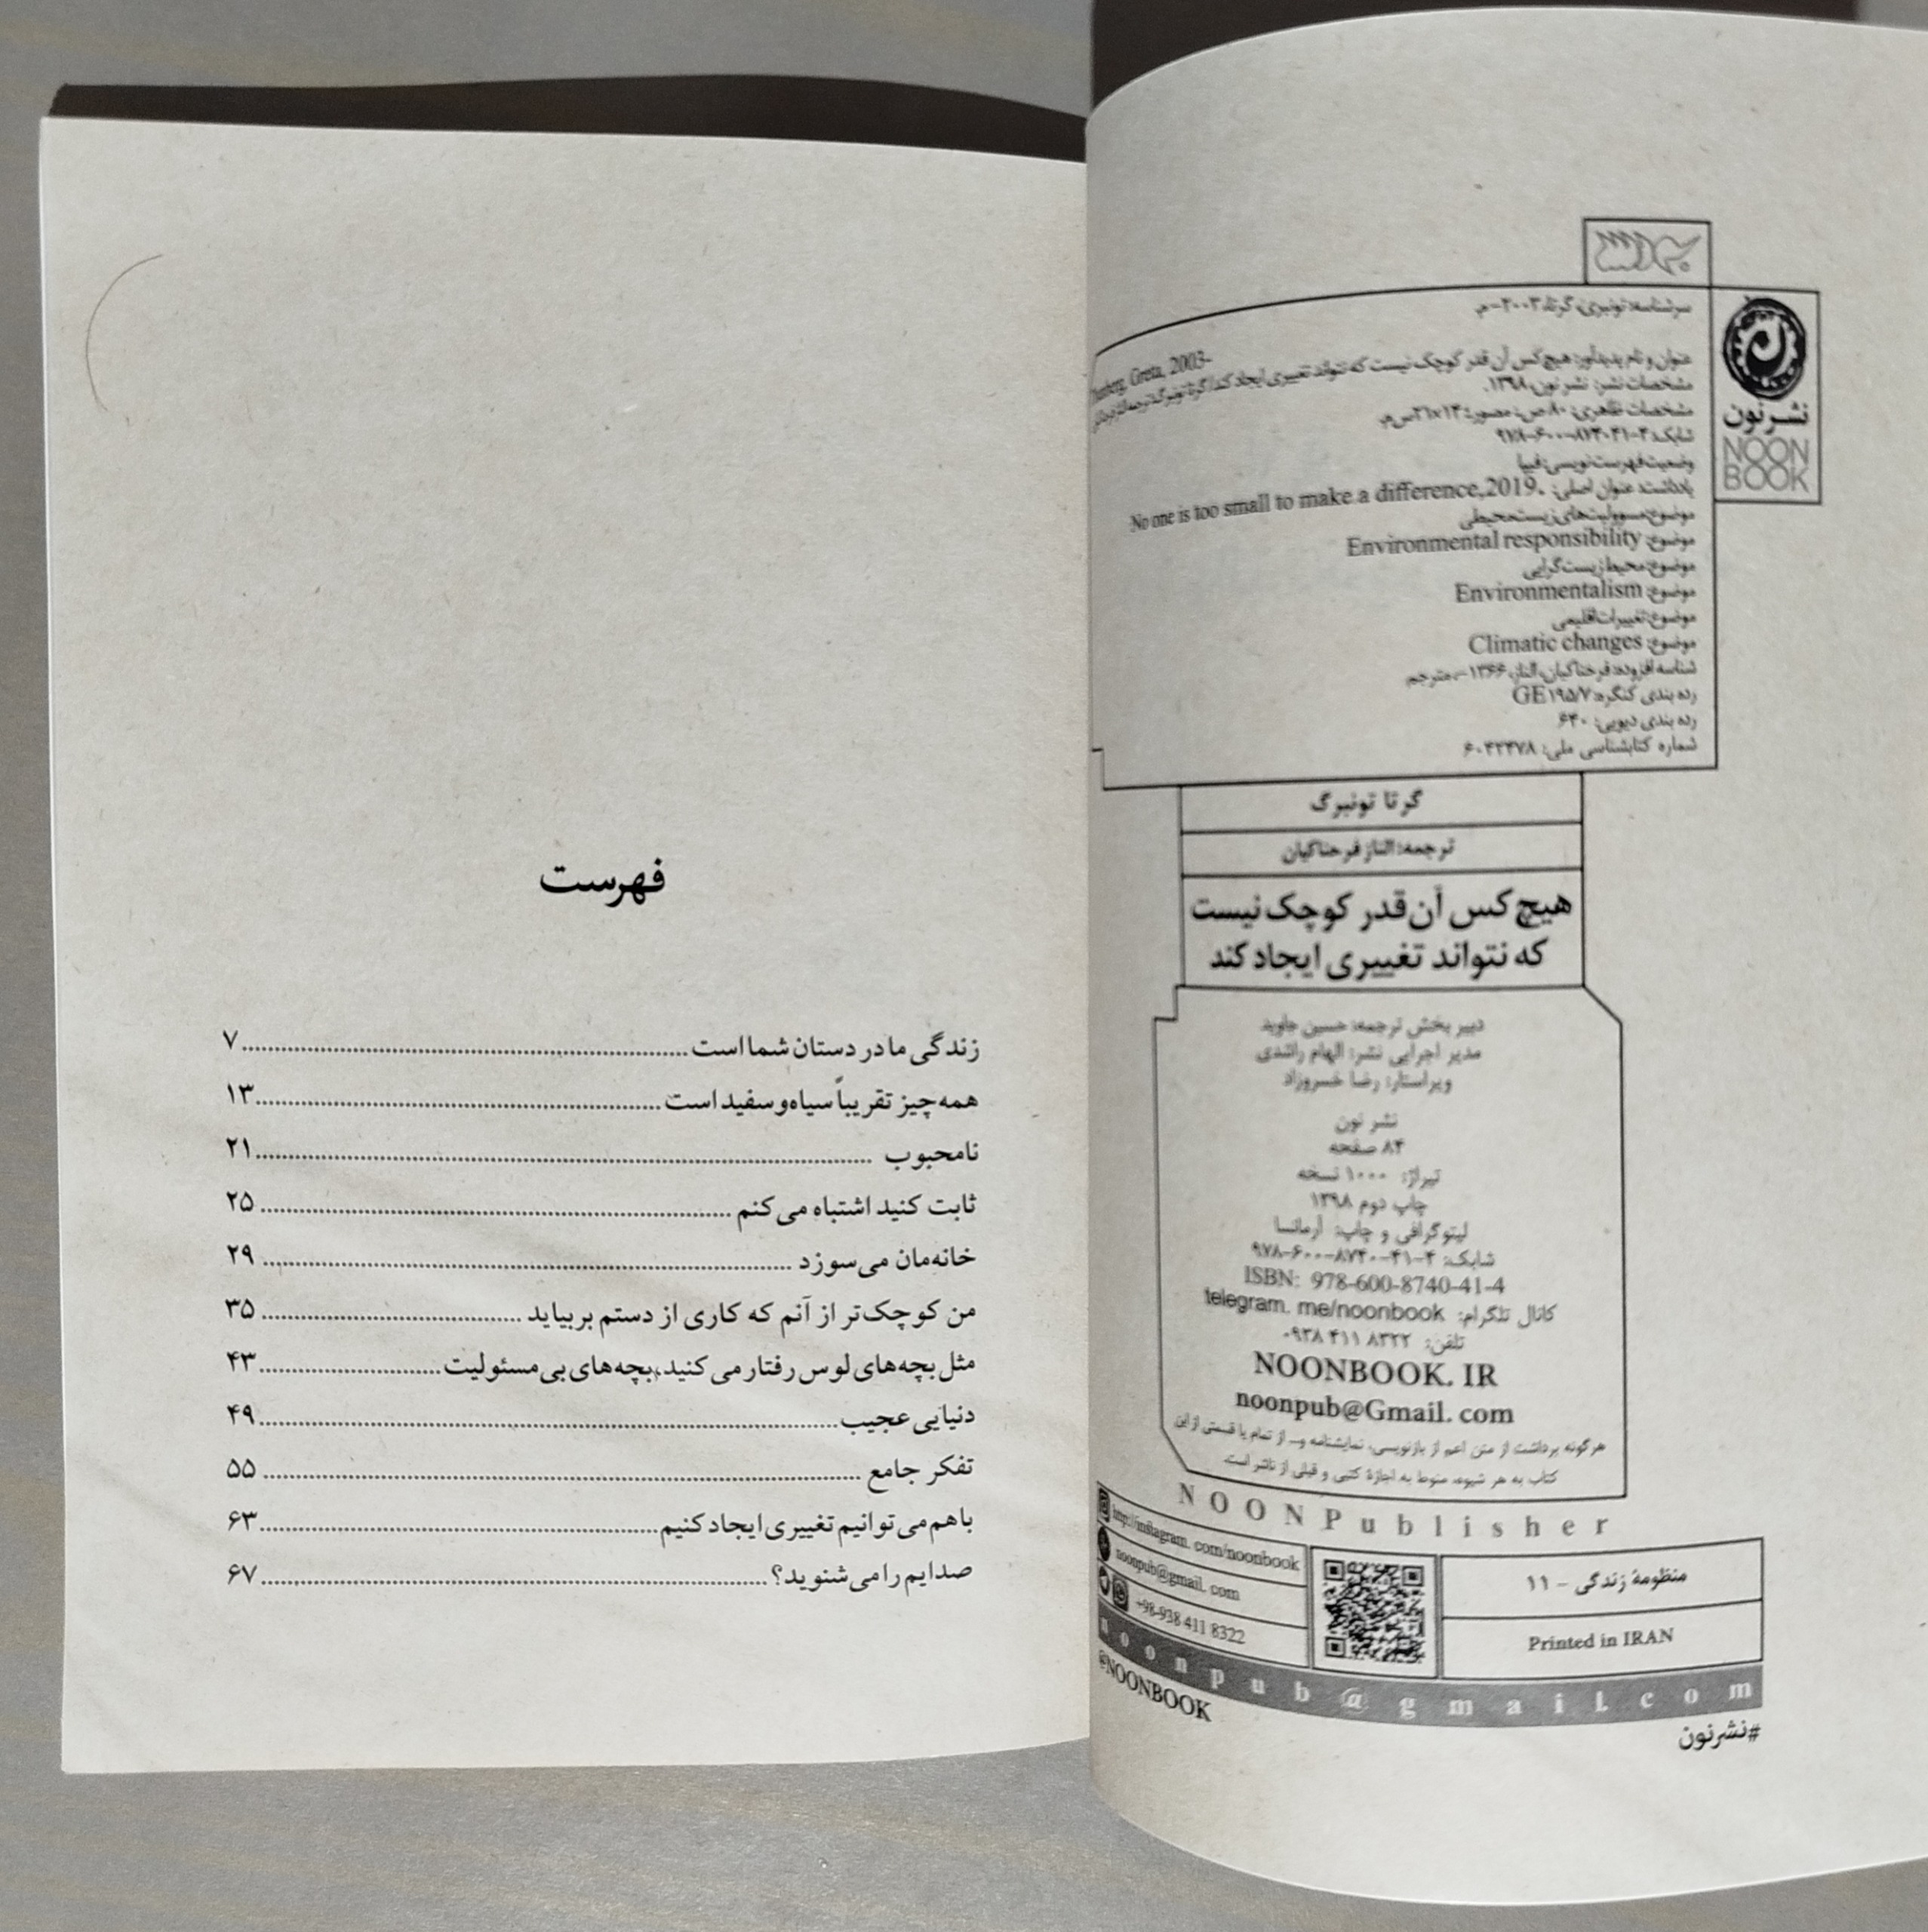 سرشناسه: تونبرگ، گرتا، ۲۰۰۳-م.
Thunberg, Greta, 2003-
عنوان و نام پدیدآور: هیچ‌کس آن قدر کوچک نیست که نتواند تغییری ایجاد کند/ گرتا تونبرگ؛ ترجمه الناز فرحناکیان
مشخصات نشر: نشر نون، ۱۳۹۸.
مشخصات ظاهری: ۸۰ ص: مصور؛ ۱۴×۲۱ س‌م.
شابک:
وضعیت فهرست‌نویسی: فیپا
یادداشت: عنوان اصلی: .No one is too small to make a difference,2019
موضوع: مسوولیت‌های زیست‌محیطی
موضوع: Environmental responsibility
موضوع: محیط‌ زیست‌گرایی
موضوع: Environmentalism
موضوع: تغییرات اقلیمی
موضوع: Climatic changes
شناسه افزوده: فرحناکیان، الناز، ۱۳۶۶-، مترجم
رده بندی کنگره: GE۱۹۵/۷
رده بندی دیویی: ۶۴۰
شماره کتابشناسی ملی: ۶۰۴۲۴۷۸
نشر نون
NOON
BOOK
گرتا تونبرگ
ترجمه: الناز فرحناکیان
هیچ کس آن قدر کوچک نیست
که نتواند تغییری ایجاد کند
دبیر بخش ترجمه: حسین جاوید
مدیر اجرایی نشر: الهام راشدی
ویراستار: رضا خسروزاد
نشر نون
۸۴ صفحه
تیراژ: ۱۰۰۰ نسخه
چاپ دوم ۱۳۹۸
لیتوگرافی و چاپ: آرمانسا
شابک: ۹۷۸-۶۰۰-۸۷۴۰-۴۱-۴
ISBN: 978-600-8740-41-4
کانال تلگرام: telegram. me/noonbook
تلفن: ۰۹۳۸ ۴۱۱ ۸۳۲۲
NOONBOOK. IR
noonpub@Gmail. com
هرگونه برداشت از متن اعم از بازنویسی، نمایشنامه و... از تمام یا قسمتی از این
کتاب به هر شیوه، منوط به اجازهٔ کتبی و قبلی از ناشر است.
NOONPublisher
http://instagram. com/noonbook
noonpub@gmail. com
+98-938 411 8322
منظومهٔ زندگی - ۱۱
Printed in IRAN
noonpub@gmail.com
@NOONBOOK
#نشرنون
فهرست
زندگی ما در دستان شما است ۷
همه‌چیز تقریباً سیاه و سفید است ۱۳
نامحبوب ۲۱
ثابت کنید اشتباه می‌کنم ۲۵
خانه‌مان می‌سوزد ۲۹
من کوچک‌تر از آنم که کاری از دستم بربیاید ۳۵
مثل بچه‌های لوس رفتار می‌کنید، بچه‌های بی‌مسئولیت ۴۳
دنیایی عجیب ۴۹
تفکر جامع ۵۵
باهم می‌توانیم تغییری ایجاد کنیم ۶۳
صدایم را می‌شنوید؟ ۶۷